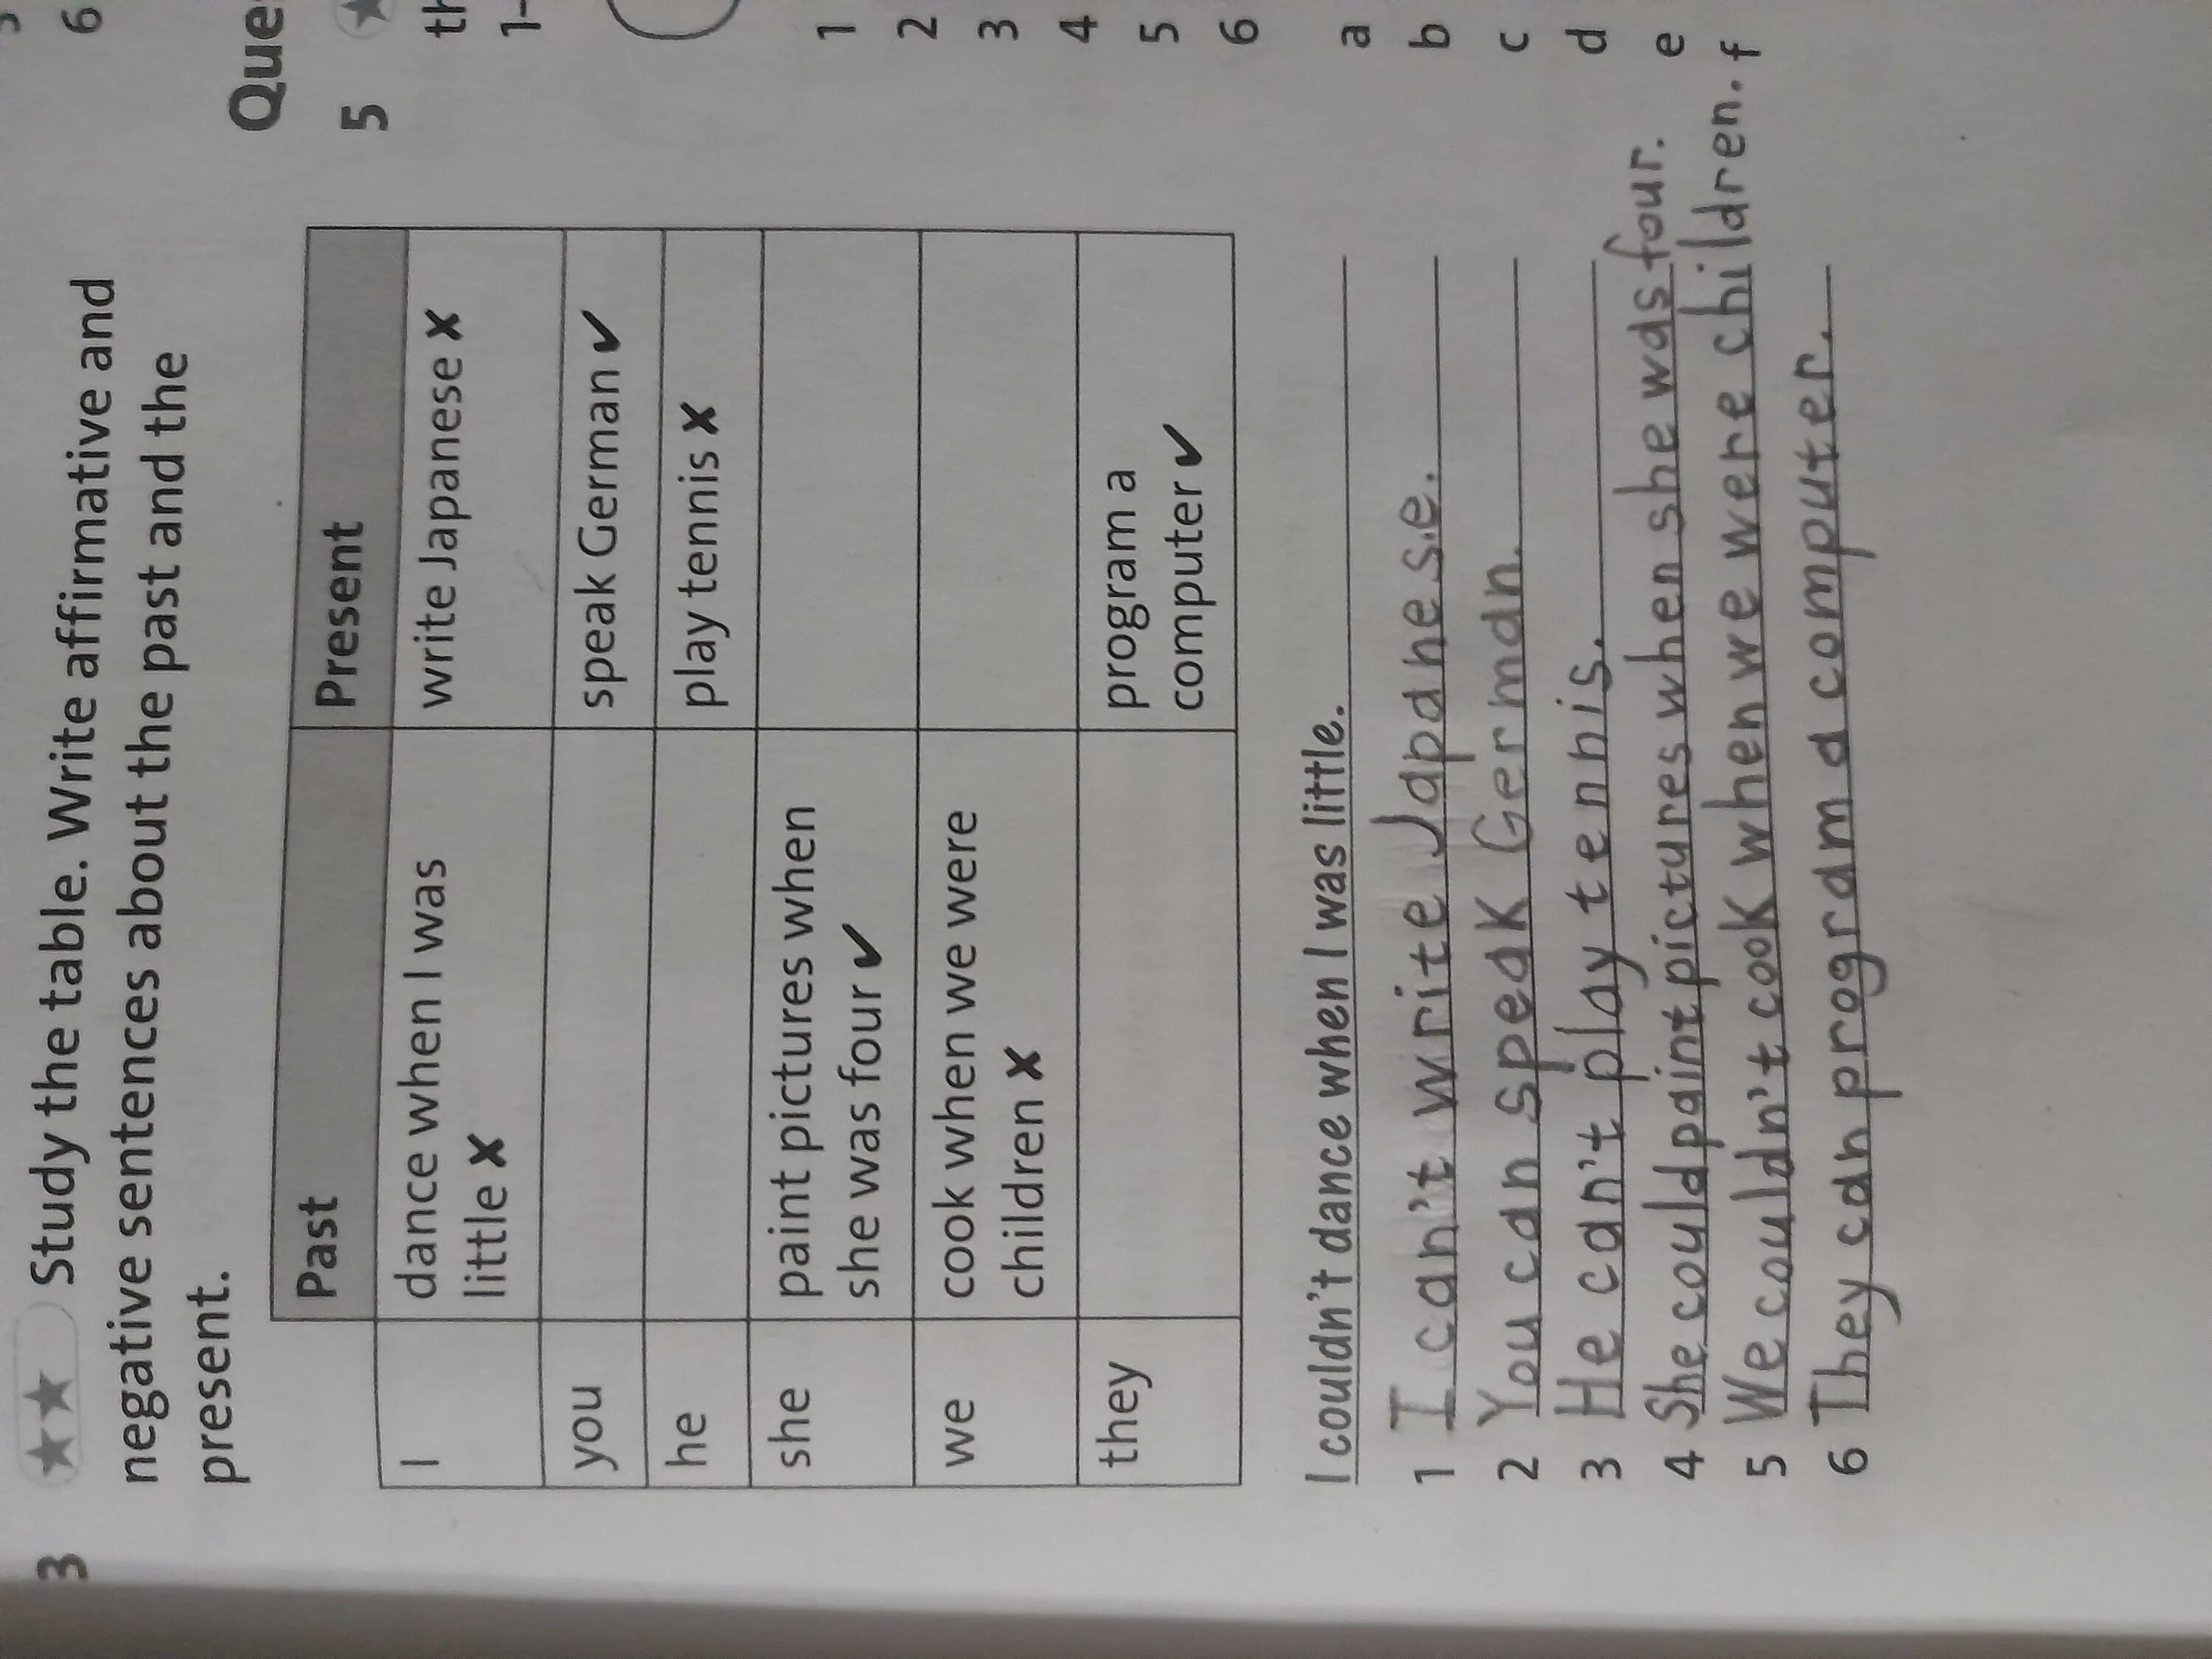 6
3 ★★ Study the table. Write affirmative and
negative sentences about the past and the
present.
Past Present
I dance when I was write Japanese ✗
little ✗
you speak German ✓
he play tennis ✗
she paint pictures when
she was four ✓
we cook when we were
children ✗
they program a
computer ✓
I couldn't dance when I was little.
1 I can't write Japanese.
2 You can speak German.
3 He can't play tennis.
4 She could paint pictures when she was four.
5 We couldn't cook when we were children.
6 They can program a computer.
5 ★
1
2
3
4
5
6
a
b
c
d
e
f